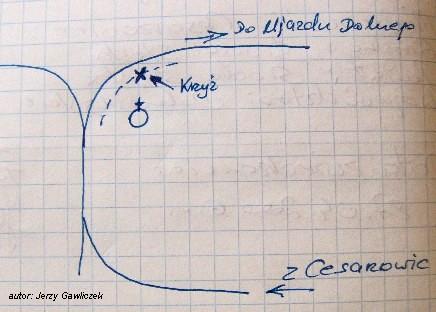 Do Ujazdu Dolnego
Krzyż
z Cesarowic
autor: Jerzy Gawliczek